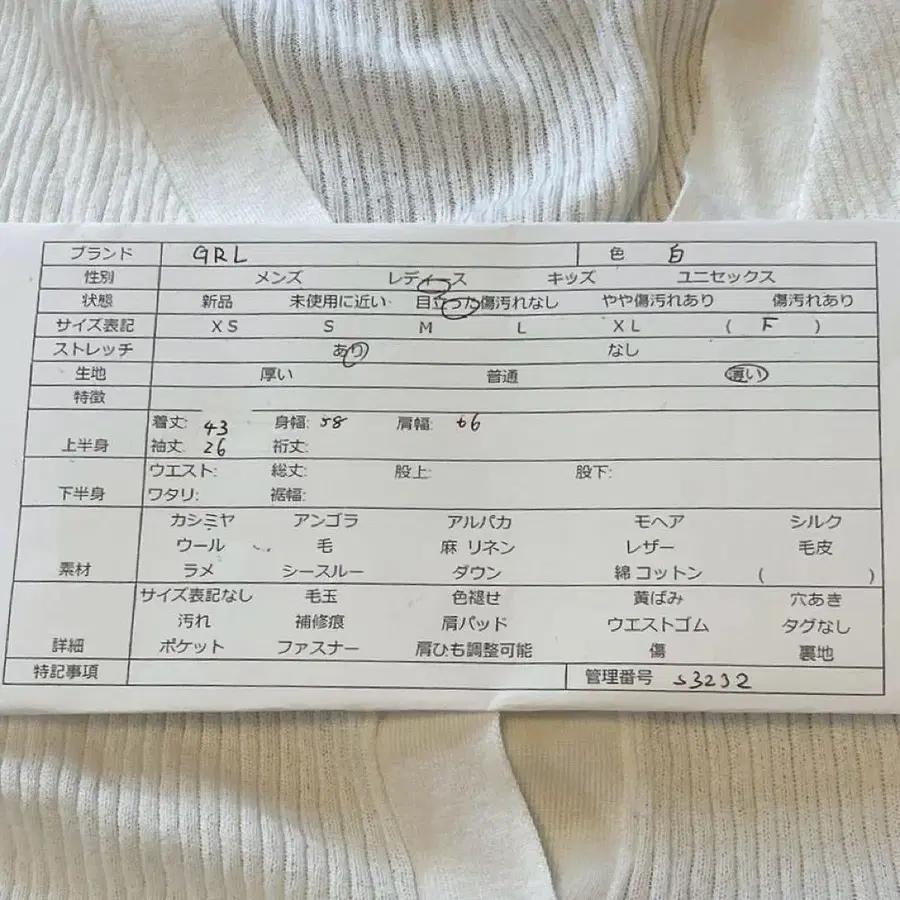 ブランド GRL 色 白
性別 メンズ レディース キッズ ユニセックス
状態 新品 未使用に近い 目立った傷汚れなし やや傷汚れあり 傷汚れあり
サイズ表記 XS S M L XL ( F )
ストレッチ あり なし
生地 厚い 普通 薄い
特徴
着丈: 43 身幅: 58 肩幅: 66
上半身 袖丈: 26 裄丈:
ウエスト: 総丈: 股上: 股下:
下半身 ワタリ: 裾幅:
カシミヤ アンゴラ アルパカ モヘア シルク
ウール 毛 麻 リネン レザー 毛皮
素材 ラメ シースルー ダウン 綿 コットン ( )
サイズ表記なし 毛玉 色褪せ 黄ばみ 穴あき
汚れ 補修痕 肩パッド ウエストゴム タグなし
詳細 ポケット ファスナー 肩ひも調整可能 傷 裏地
特記事項 管理番号 S3232